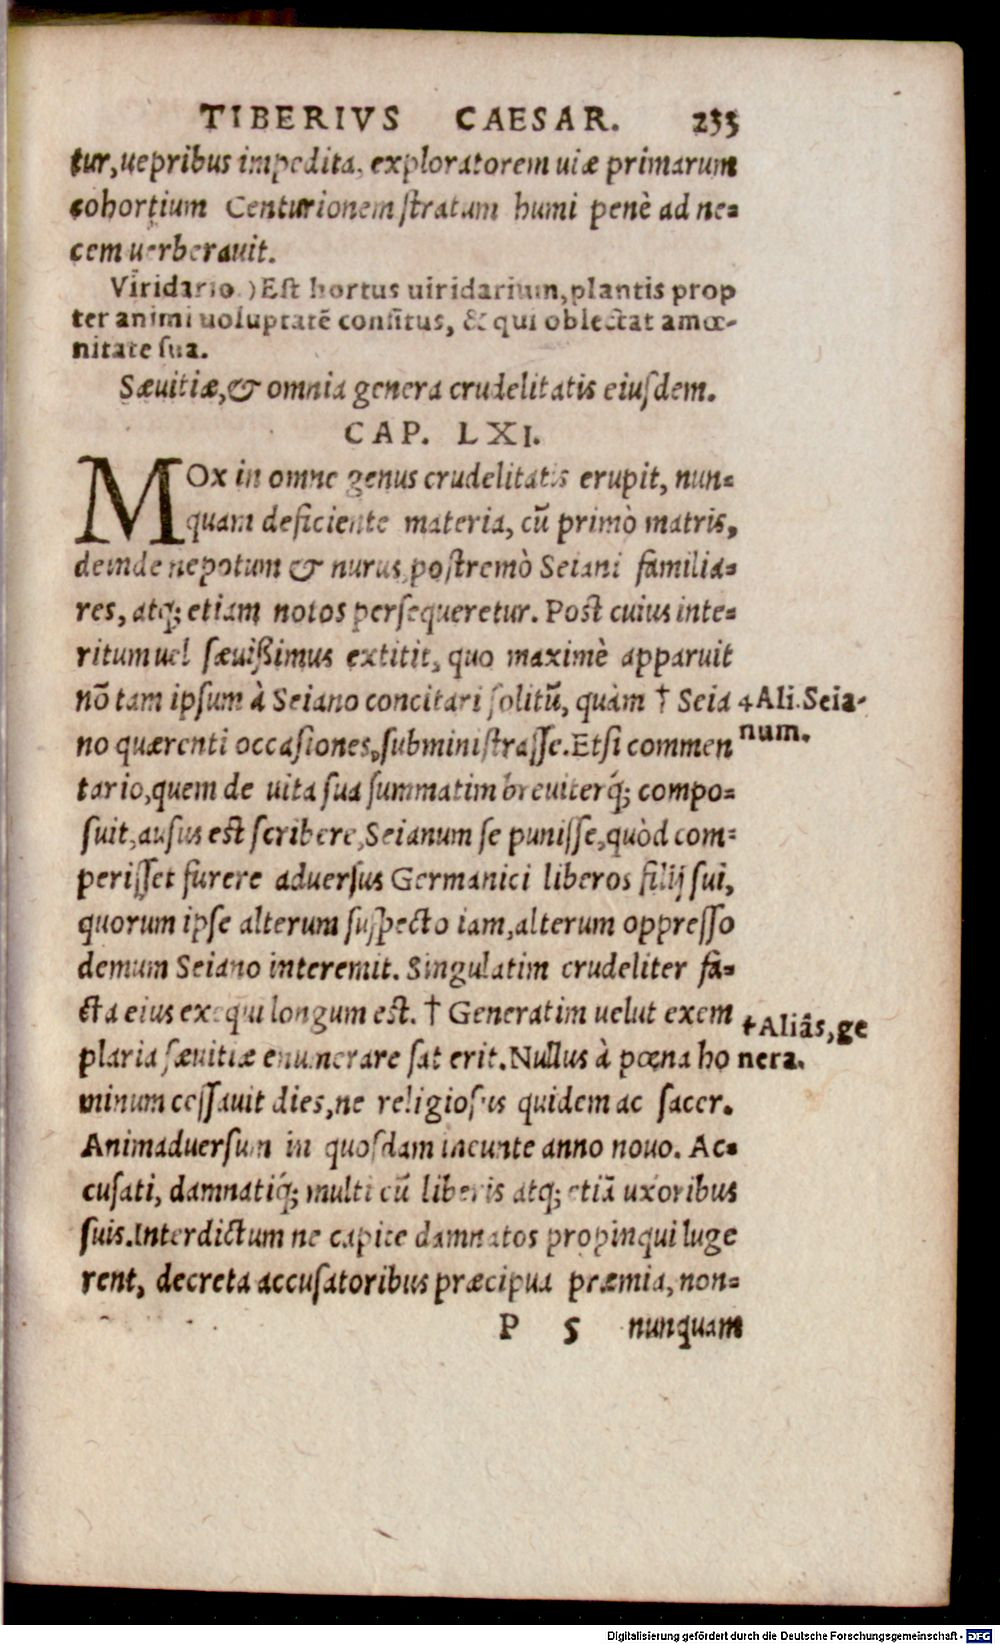 TIBERIVS CAESAR. 233
tur, uepribus impedita, exploratorem uiæ primarum
cohortium Centurionem ſtratum humi penè ad ne=
cem uerberauit.
Viridario.) Eſt hortus uiridarium, plantis prop
ter animi uoluptatẽ conſitus, & qui oblectat amœ-
nitate ſua.
Sæuitiæ, & omnia genera crudelitatis eiuſdem.
CAP. LXI.
MOx in omne genus crudelitatis erupit, nun=
quam deficiente materia, cũ primò matris,
deinde nepotum & nurus, poſtremò Seiani familia=
res, atq; etiam notos perſequeretur. Poſt cuius inte=
ritum uel ſæuißimus extitit, quo maximè apparuit
nõ tam ipſum à Seiano concitari ſolitũ, quàm † Seia
no quærenti occaſiones, ſubminiſtraſſe. Etſi commen
tario, quem de uita ſua ſummatim breuiterq́; compo=
ſuit, auſus eſt ſcribere, Seianum ſe puniſſe, quòd com=
periſſet furere aduerſus Germanici liberos filij ſui,
quorum ipſe alterum ſuſpecto iam, alterum oppreſſo
demum Seiano interemit. Singulatim crudeliter fa=
cta eius exequi longum eſt. † Generatim uelut exem
plaria ſæuitiæ enumerare ſat erit. Nullus à pœna ho
minum ceſſauit dies, ne religioſus quidem ac ſacer.
Animaduerſum in quoſdam ineunte anno nouo. Ac=
cuſati, damnatiq́; multi cũ liberis atq; etiã uxoribus
ſuis. Interdictum ne capite damnatos propinqui luge
rent, decreta accuſatoribus præcipua præmia, non=
P 5 nunquam
† Ali. Seia-
num.
† Aliâs, ge
nera.
Digitalisierung gefördert durch die Deutsche Forschungsgemeinschaft - DFG